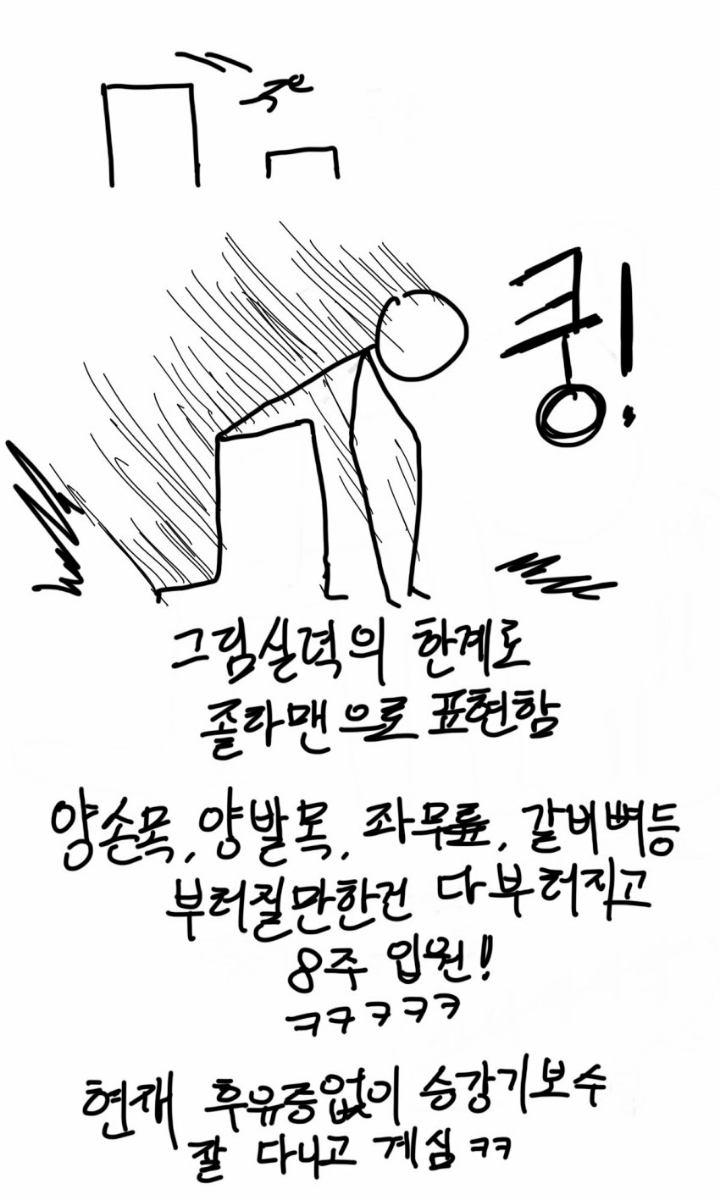 쿵!
그림실력의 한계로
졸라맨으로 표현함
양손목, 양발목, 좌무릎, 갈비뼈등
부러질만한건 다 부러지고
8주 입원!
ㅋㅋㅋㅋㅋ
현재 후유증없이 승강기보수
잘 다니고 계심 ㅋㅋ